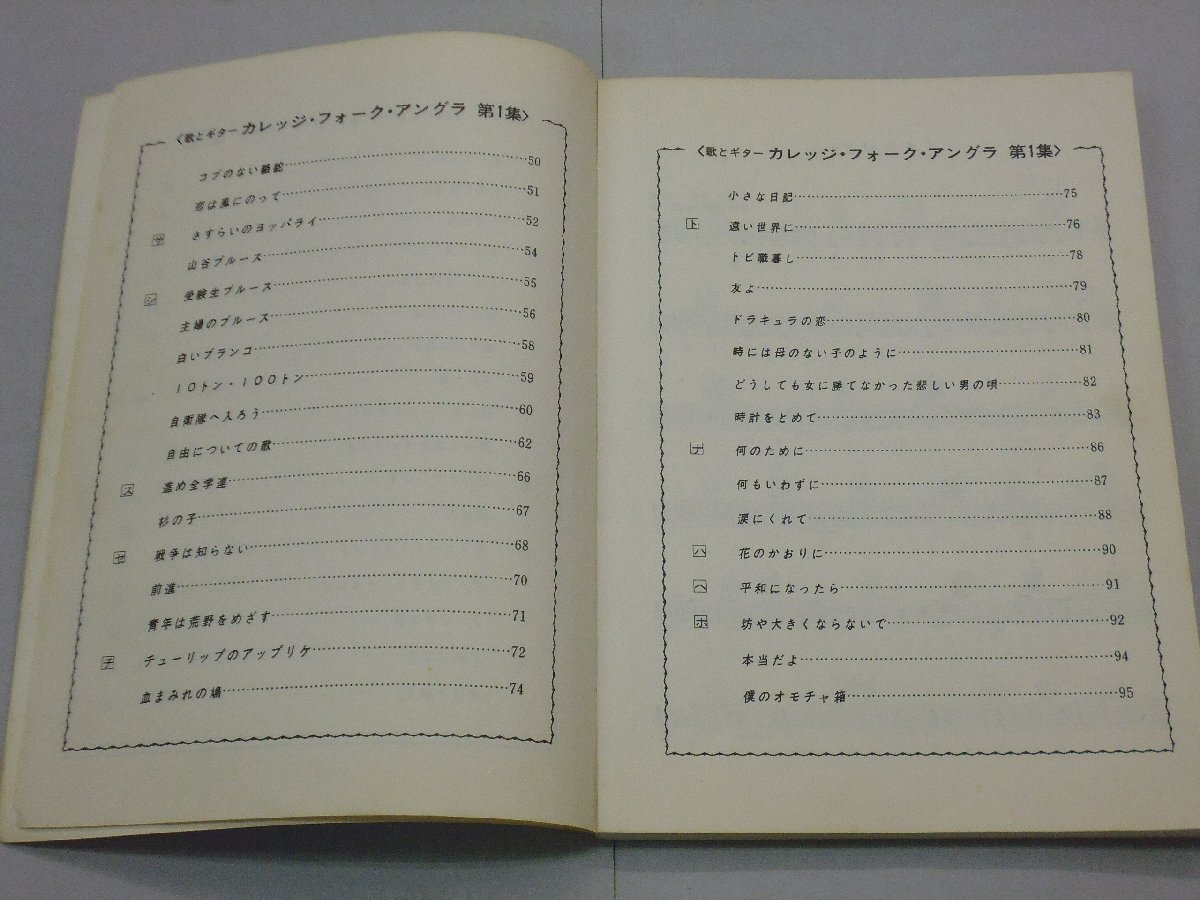 〈歌とギター カレッジ・フォーク・アングラ 第1集〉
コブのない駱駝……50
恋は風にのって……51
サ さすらいのヨッパライ……52
山谷ブルース……54
シ 受験生ブルース……55
主婦のブルース……56
白いブランコ……58
10トン・100トン……59
自衛隊へ入ろう……60
自由についての歌……62
ス 進め全学連……66
杉の子……67
セ 戦争は知らない……68
前進……70
青年は荒野をめざす……71
チ チューリップのアップリケ……72
血まみれの鳩……74
〈歌とギター カレッジ・フォーク・アングラ 第1集〉
小さな日記……75
ト 遠い世界に……76
トビ職暮し……78
友よ……79
ドラキュラの恋……80
時には母のない子のように……81
どうしても女に勝てなかった悲しい男の唄……82
時計をとめて……83
ナ 何のために……86
何もいわずに……87
涙にくれて……88
ハ 花のかおりに……90
ヘ 平和になったら……91
ホ 坊や大きくならないで……92
本当だよ……94
僕のオモチャ箱……95